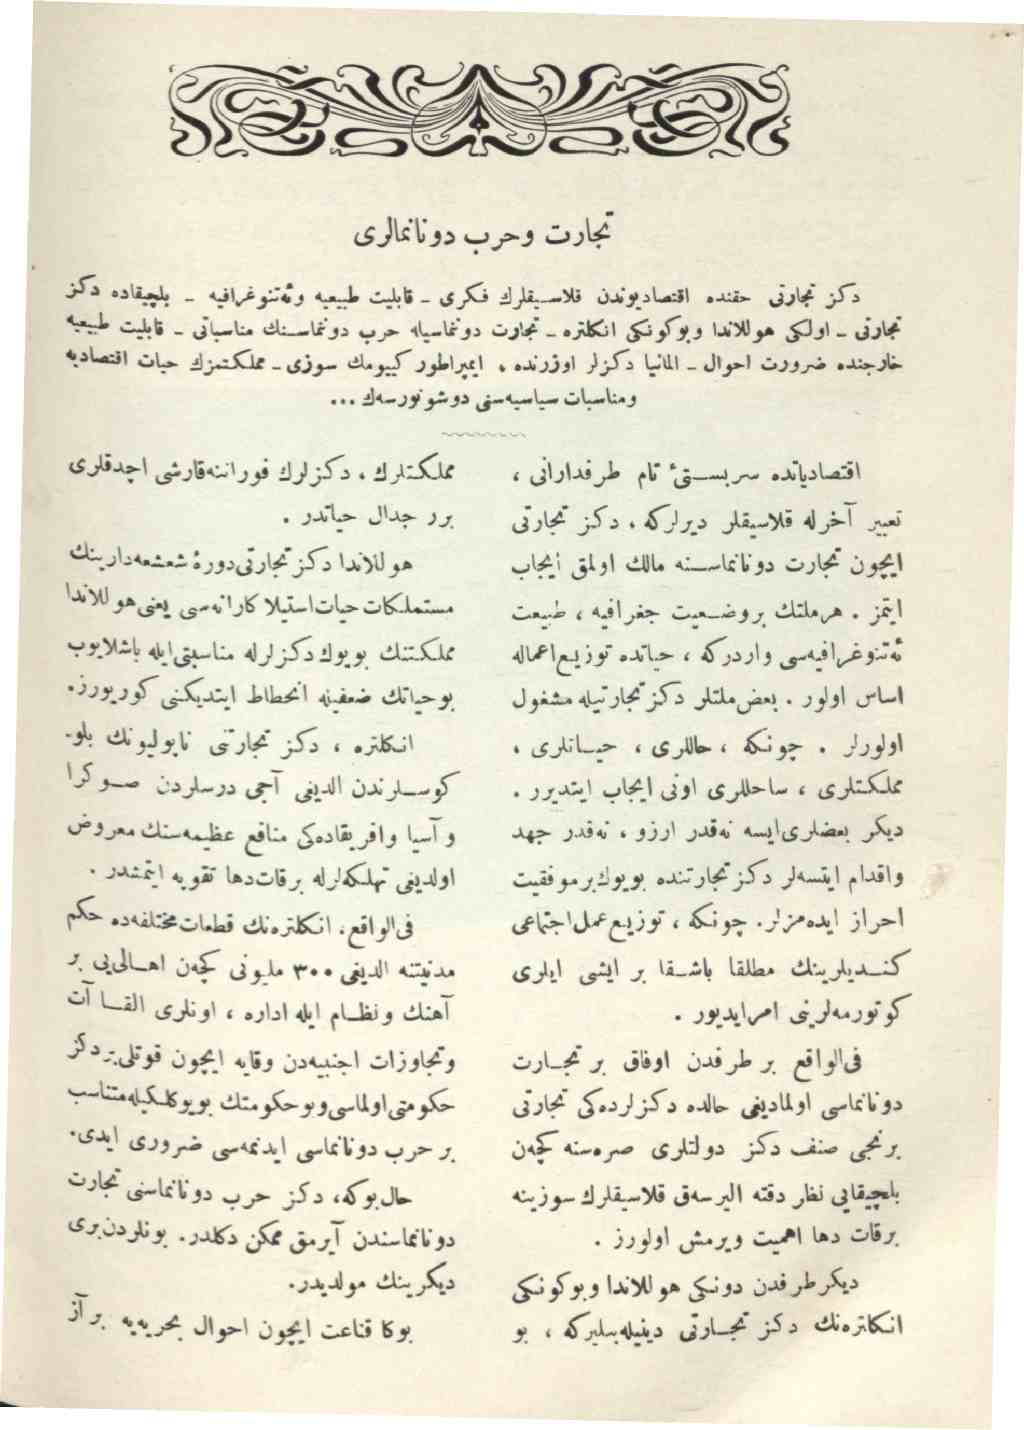 تجارت وحرب دونانمالری
دكز تجارتی حقنده اقتصادیوندن قلاسیقلرك فكری ـ قابلیت طبیعیه وئه‌تنوغرافیه ـ بلچیقاده دكز
تجارتی ـ اولكی هوللاندا وبوكونكی انكلتره ـ تجارت دوننماسیله حرب دوننماسنك مناسباتی ـ قابلیت طبیعیه
خارجنده ضرورت احوال ـ المانیا دكزلر اوزرنده ، ایمپراطور كییومك سوزی ـ مملكتمزك حیات اقتصادیه
ومناسبات سیاسیه‌سنی دوشونورسه‌ك ...
اقتصادیاتده سربستیٔ تام طرفدارانی ،
تعبیر آخرله قلاسیقلر دیرلركه ، دكز تجارتی
ایچون تجارت دونانماسنه مالك اولمق ایجاب
ایتمز . هرملتك بروضعیت جغرافیه ، طبیعت
ئه‌تنوغرافیه‌سی واردركه ، حیاتده توزیع‌اعماله
اساس اولور . بعض‌ملتلر دكز تجارتیله مشغول
اولورلر . چونكه ، حاللری ، حیاتلری ،
مملكتلری ، ساحللری اونی ایجاب ایتدیرر .
دیكر بعضلری‌ایسه نه‌قدر ارزو ، نه‌قدر جهد
واقدام ایتسه‌لر دكز تجارتنده بویوك‌برموفقیت
احراز ایده‌مزلر. چونكه ، توزیع‌عمل‌اجتماعی
كندیلرینك مطلقا باشقا بر ایشی ایلری
كوتورمه‌لرینی امرایدیور .
فی‌الواقع بر طرفدن اوفاق بر تجارت
دونانماسی اولمادیغی حالده دكزلرده‌كی تجارتی
برنجی صنف دكز دولتلری صره‌سنه كچه‌ن
بلچیقایی نظر دقته الیرسه‌ق قلاسیقلرك سوزینه
برقات دها اهمیت ویرمش اولورز .
دیكرطرفدن دونكی هوللاندا وبوكونكی
انكلتره‌نك دكز تجارتی دینیله‌بیلیركه ، بو
مملكتلرك ، دكزلرك فوراننه‌قارشی اچدقلری
برر جدال حیاتدر .
هوللاندا دكز تجارتی‌دورهٔ شعشعه‌دارینك
مستملكات حیات‌استیلاكارانه‌سی یعنی‌هوللاندا
مملكتنك بویوك‌دكزلرله مناسبتی‌ایله باشلایوب
بوحیاتك ضعفیله انحطاط ایتدیكنی كوریورز.
انكلتره ، دكز تجارتنی ناپولیونك بلو-
كوسلرندن الدیغی آجی درسلردن صوكرا
و آسیا وافریقاده‌كی منافع عظیمه‌سنك معروض
اولدیغی تهلكه‌لرله برقات‌دها تقویه ایتمشدر .
فی‌الواقع، انكلتره‌نك قطعات‌مختلفه‌ده حكم
مدنیتنه الدیغی ٣٠٠ ملیونی كچه‌ن اهالی‌یی بر
آهنك ونظام ایله اداره ، اونلری القاآت
وتجاوزات اجنبیه‌دن وقایه ایچون قوتلی‌بردكز
حكومتی‌اولماسی‌وبوحكومتك بویوكلكیله‌متناسب
بر حرب دونانماسی ایدنمه‌سی ضروری ایدی.
حال‌بوكه، دكز حرب دونانماسنی تجارت
دونانماسندن آیرمق ممكن دكلدر. بونلردن‌بری
دیكرینك مولدیدر.
بوكا قناعت ایچون احوال بحریه‌یه بر آز